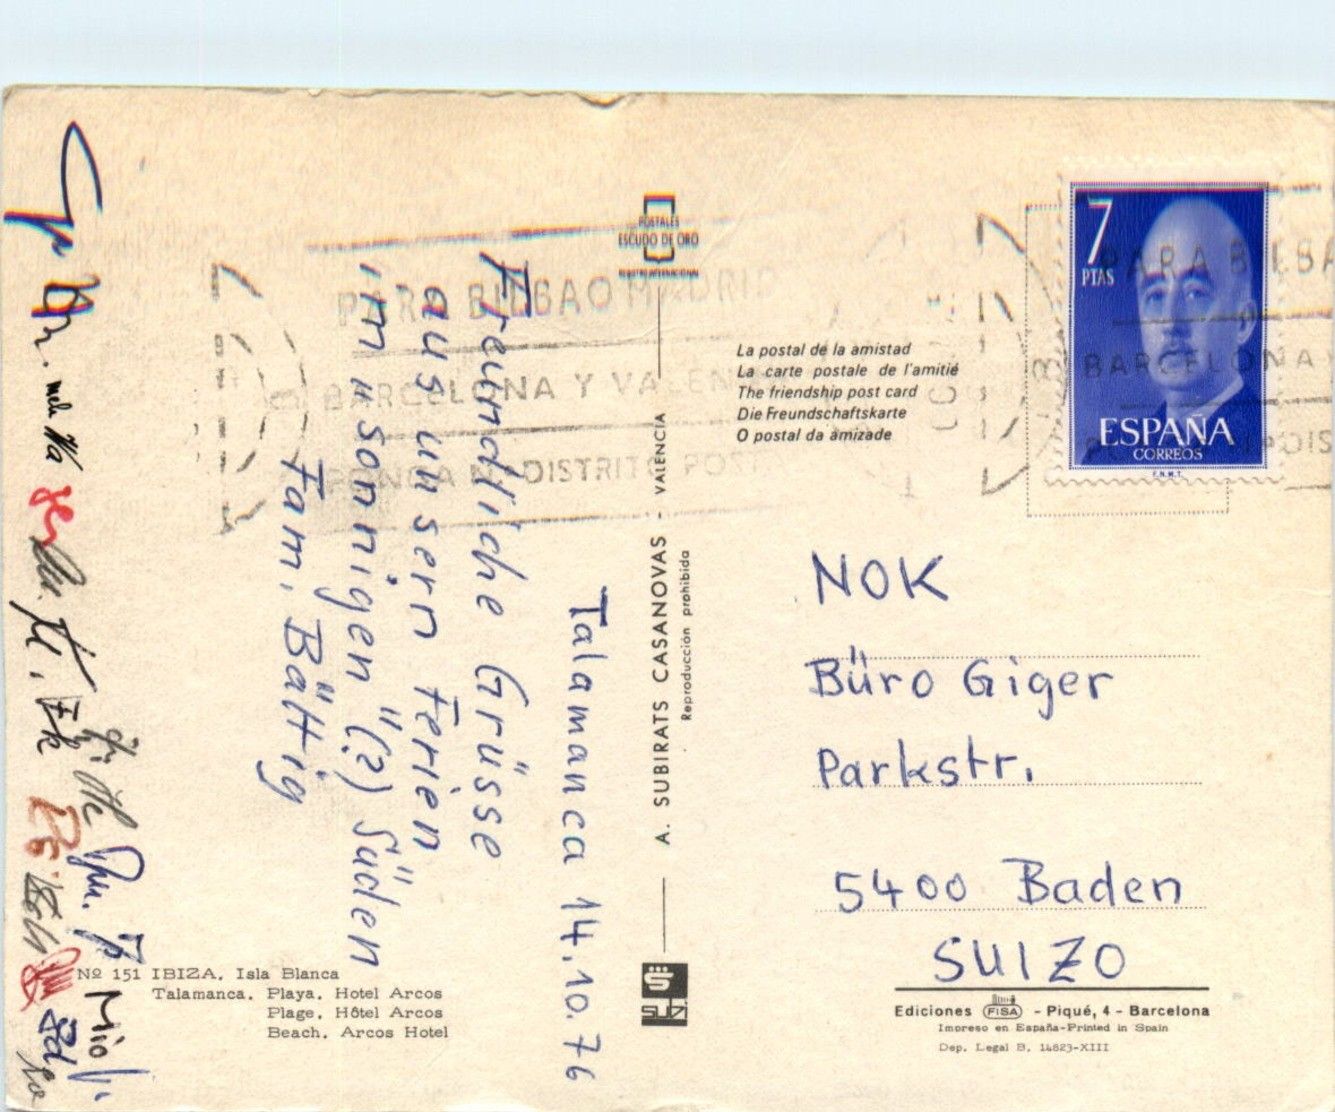 Talamanca 14.10.76
Freundliche Grüsse
aus unsern Ferien
im "sonnigen" (?) Süden
Fam. Bättig
POSTALES
ESCUDO DE ORO
A. SUBIRATS CASANOVAS - VALENCIA
Reproducción prohibida
SUB.
Nº 151 IBIZA. Isla Blanca
Talamanca. Playa. Hotel Arcos
Plage. Hôtel Arcos
Beach. Arcos Hotel
La postal de la amistad
La carte postale de l'amitié
The friendship post card
Die Freundschaftskarte
O postal da amizade
7
PTAS
ESPAÑA
CORREOS
F.N.M.T.
PARA BILBAO MADRID
BARCELONA Y VALENCIA
PONGA Nº DISTRITO POSTAL
NOK
Büro Giger
Parkstr.
5400 Baden
SUIZO
Ediciones FISA - Piqué, 4 - Barcelona
Impreso en España-Printed in Spain
Dep. Legal B. 14823-XIII